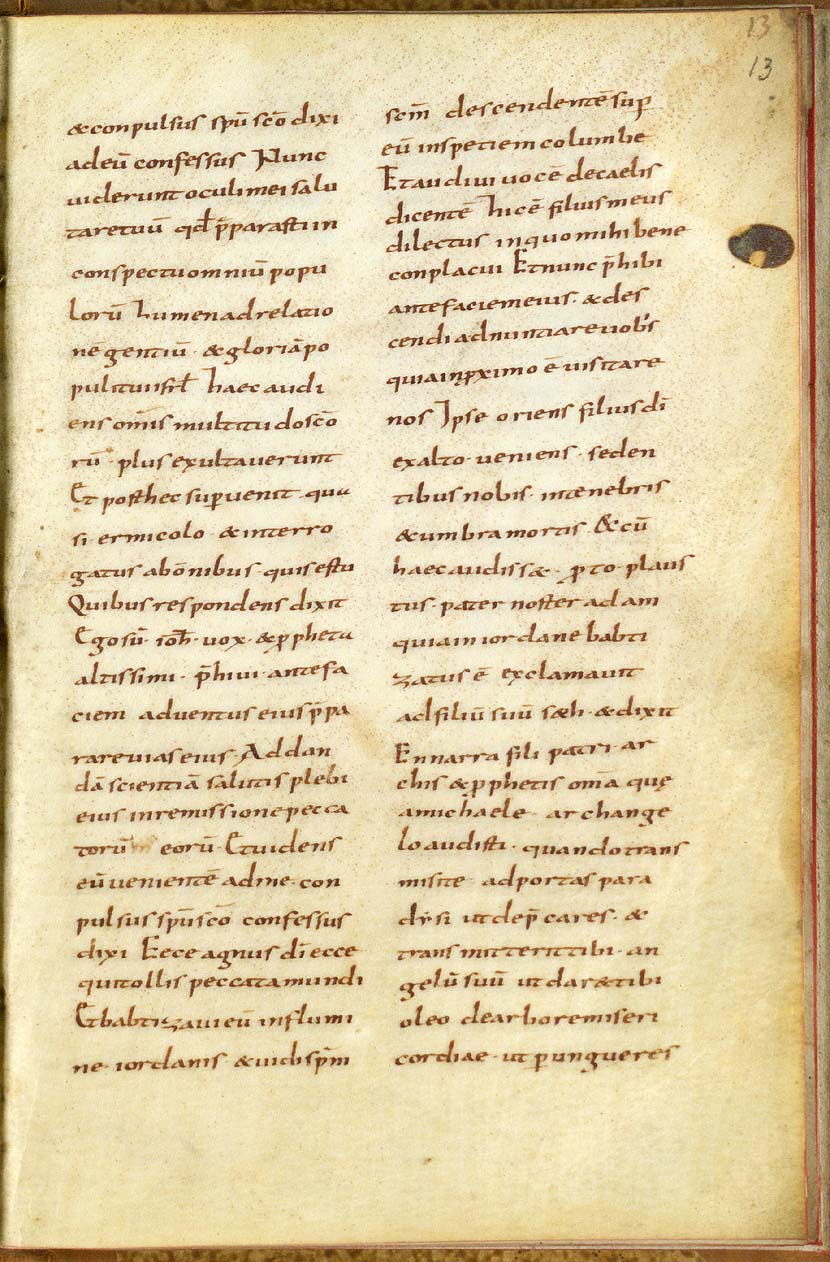 13
13
&conpulsus spū scō dixi
adeū confessus Nunc
uiderunt oculi mei salu
taretuū qđ p̄parasti in
conspectu omniū popu
lorū humen ad relatio
nē gentiū · & gloriā po
puli tui isrƚ haec audi
ens om̄is multitudo scō
rū · plus exultauerunt
Et post hec superuenit · qua
si · ermicolo · & interro
gatus ab ōnibus · quis es tu
Quibus respondens dixit
Ego sū · ioh̄ · uox · & ꝓpheta
altissimi · p̄hiui · ante fa
ciem aduentus eius p̄pa
rare uias eius · Ad dan
dā scientiā salutis plebi
eius in remissione pecca
torū eorū · Et uidens
eū uenientē ad me · con
pulsus spū scō confessus
dixi Ecce agnus dī ecce
qui tollis peccata mundi
Et babtizaui eū in flumi
ne · iordanis & uidi spm̄
scm̄ descendentē sup̄
eū in spetiem columbe
Et audiui uocē de caelis
dicentē hic ē filius meus
dilectus in quo mihi bene
conplacui Et nunc p̄hibi
ante faciem eius · & des
cendi adnuntiare uobis
quia in ꝓximo ē uisitare
nos Ipse oriens filius dī
ex alto · ueniens · seden
tibus nobis · in tenebris
& umbra mortis · & cū
haec audiss& · ꝓto · plaus
tus · pater noster adam
quia in iordane babti
zatus ē exclamauit
ad filiū suū s&h · & dixit
Ennarra fili patri ar
chis & ꝓphetis om̄a quę
a michaele · archange
lo audisti · quando trans
misite ad portas para
dysi ut dep̄cares · &
transmitterit tibi · an
gelū suū ut dar& tibi
oleo de arbore miseri
cordiae · ut perungueres